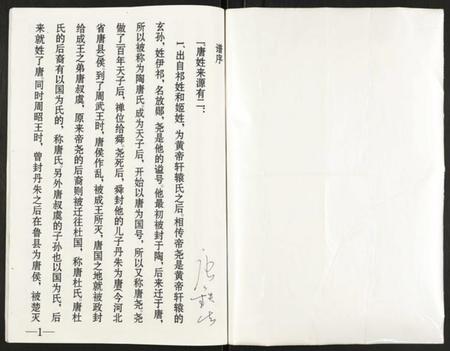 谱序
「唐姓来源有二：
1.出自祁姓和姬姓，为黄帝轩辕氏之后，相传帝尧是黄帝轩辕的
玄孙，姓伊祁，名放勋，尧是他的谥号。他最初被封于陶，后来迁于唐，
所以被称为陶唐氏，成为天子后，开始以唐为国号，所以又称唐尧。尧
做了百年天子后，禅位给舜，尧死后，舜封他的儿子丹朱为唐（今河北
省唐县）侯，到了周武王时，唐侯作乱，被成王所灭，唐国之地就被政封
给成王之弟唐叔虞，原来帝尧的后裔则被迁往杜国，称唐杜氏，唐杜
氏的后裔有以国为氏的，称唐氏。另外唐叔虞的子孙也以国为氏，后
来就姓了唐，同时周昭王时，曾封丹朱之后在鲁县为唐侯，被楚灭
—1—